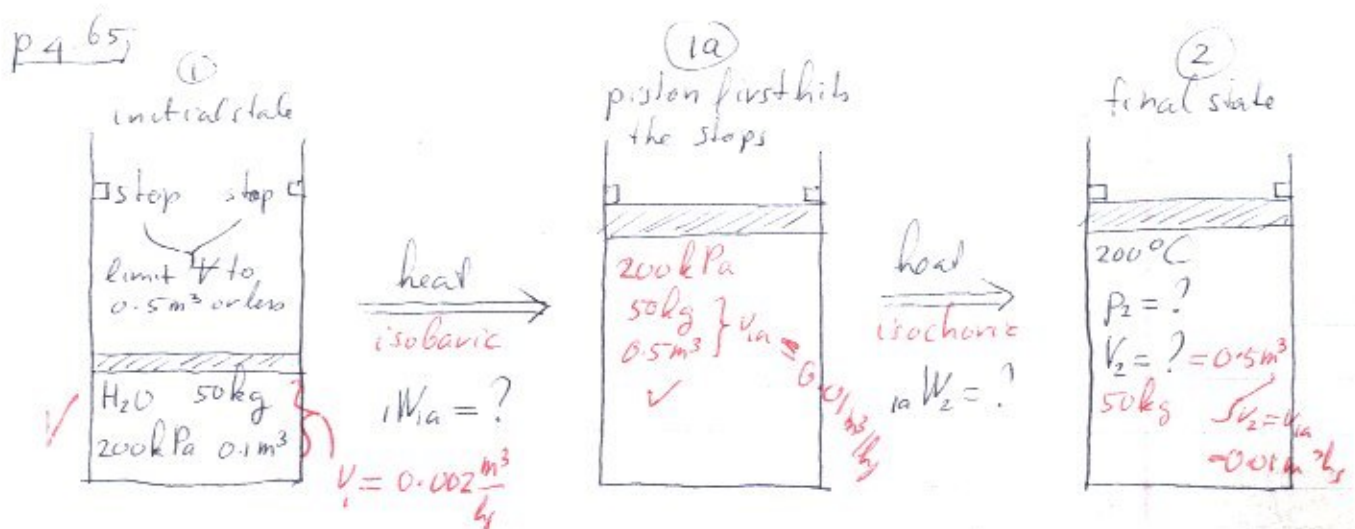 p 4.65,
①
initial state
stop stop
limit V to
0.5 m³ or less
H₂O 50kg
200kPa 0.1m³
✓
V₁ = 0.002 m³/kg
heat
isobaric
₁W₁ₐ = ?
1a
piston first hits
the stops
200kPa
50kg
0.5m³ } v₁ₐ = 0.01 m³/kg
✓
heat
isochoric
₁ₐW₂ = ?
2
final state
200°C
p₂ = ?
V₂ = ? = 0.5m³
50kg
v₂ = v₁ₐ
= 0.01 m³/kg